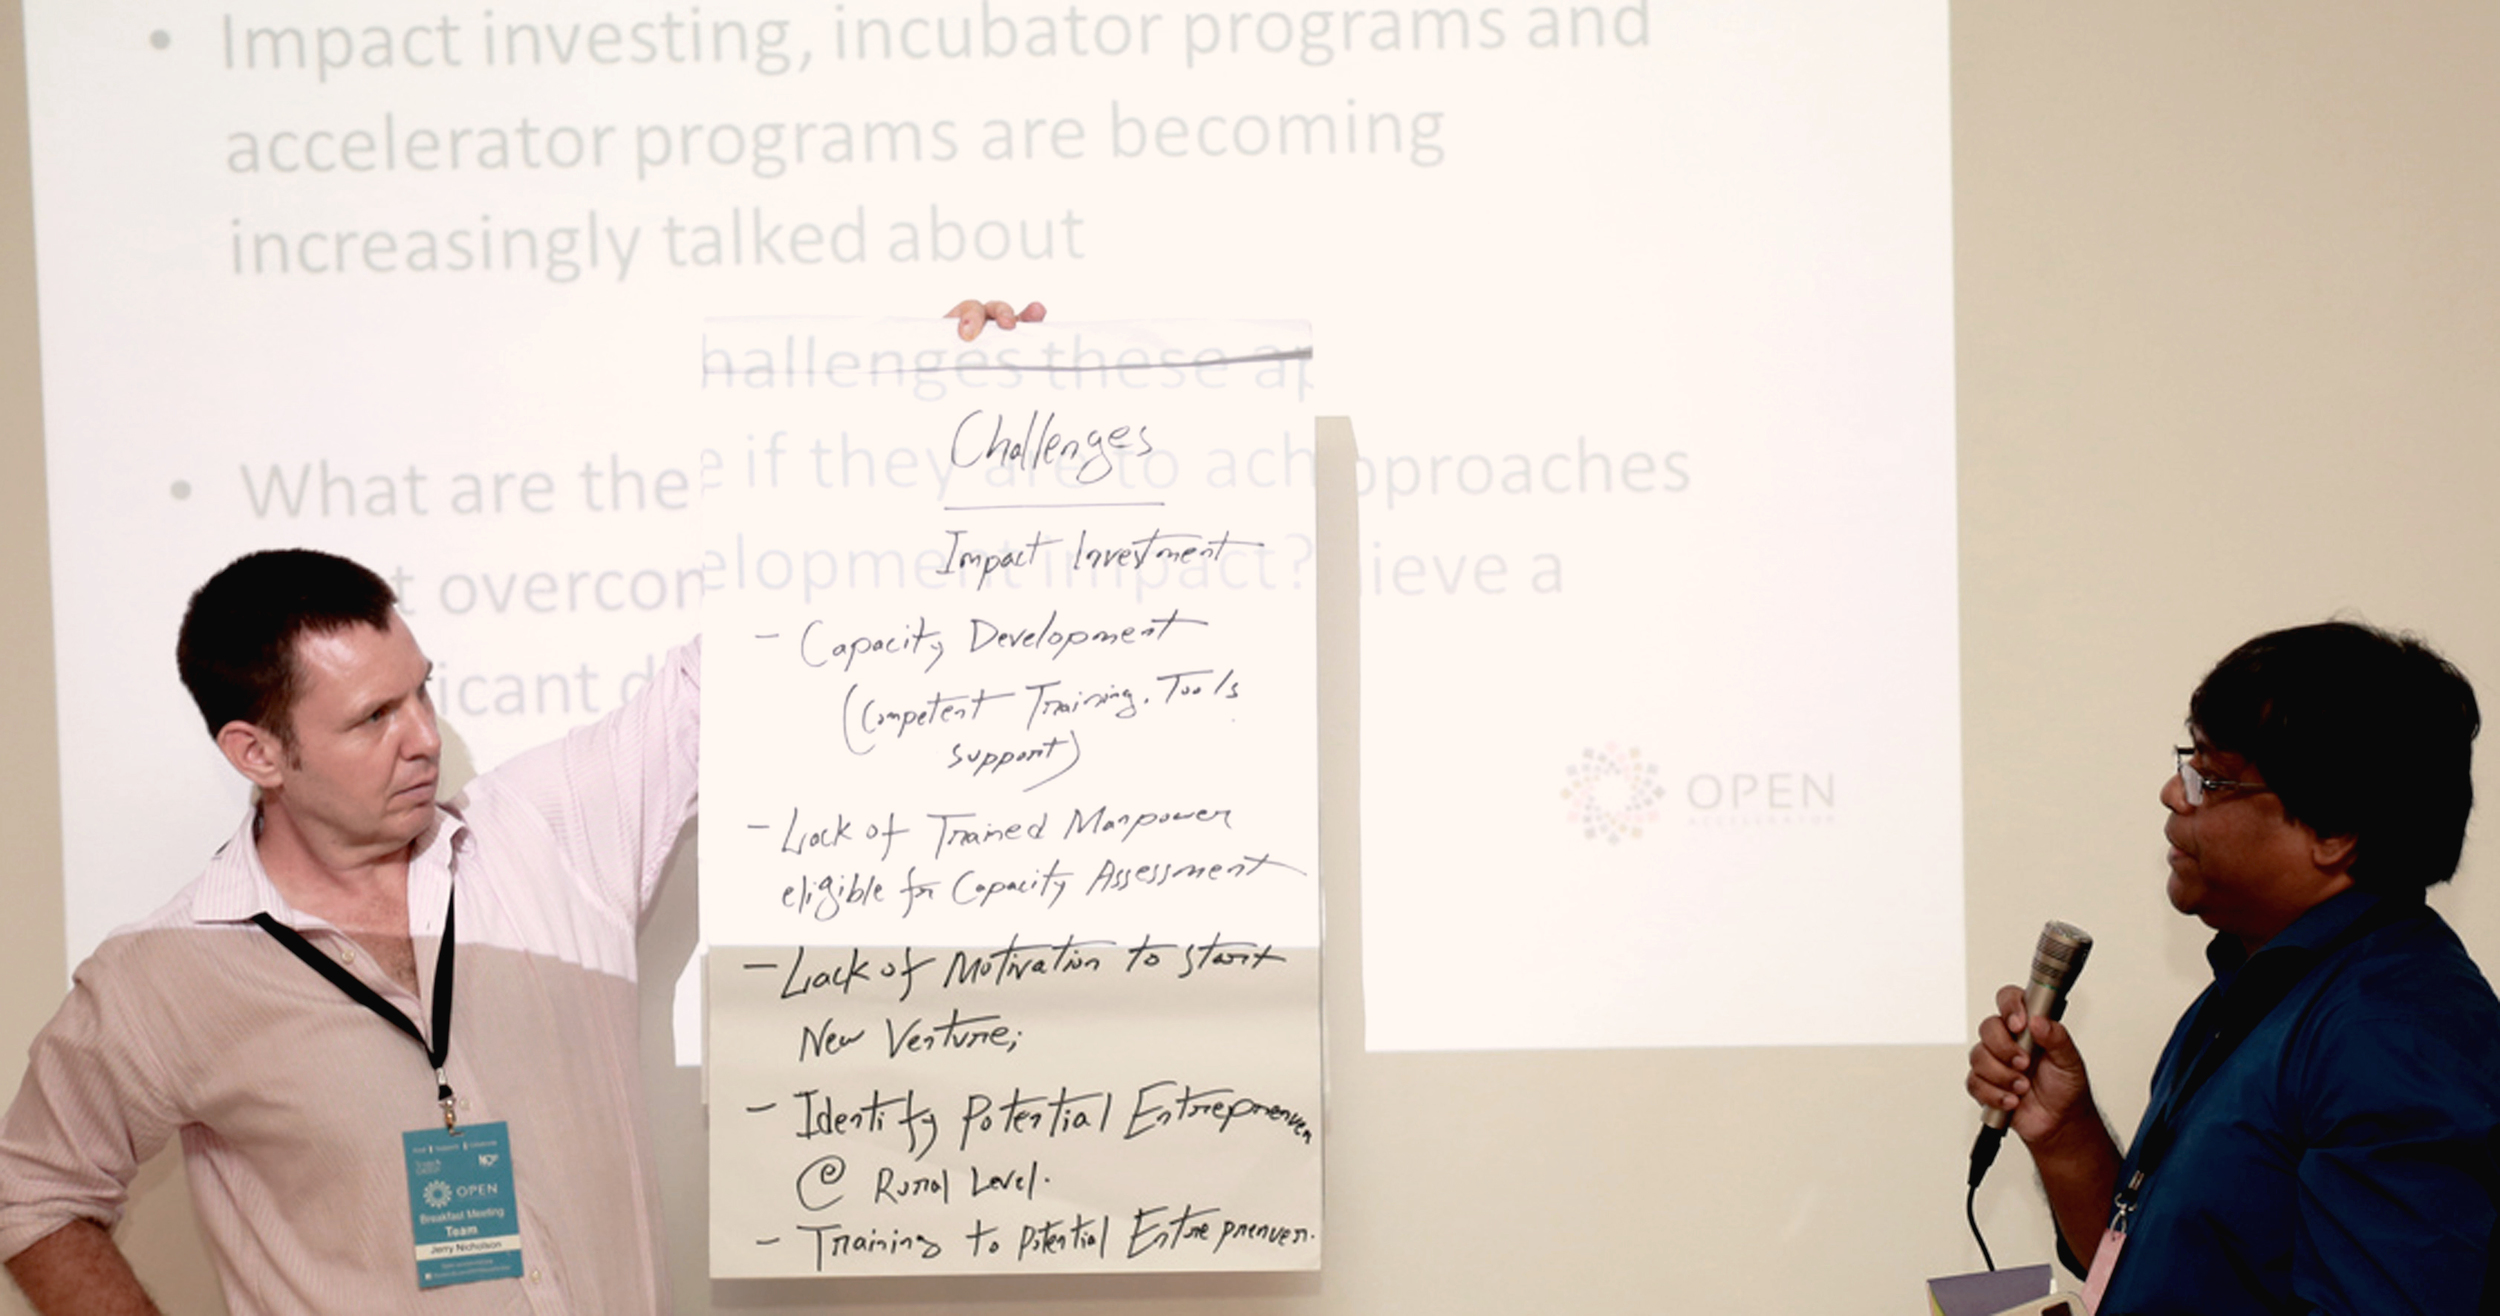 Impact investing, incubator programs and
accelerator programs are becoming
increasingly talked about
hallenges these ap
What are the e if they are to ach pproaches
t overcom elopment impact? ieve a
icant d
Challenges
Impact Investment
- Capacity Development
(Competent Training, Tools
support)
- Lack of Trained Manpower
eligible for Capacity Assessment
- Lack of Motivation to start
New Venture;
- Identify Potential Entreprenuer
@ Rural Level.
- Training to Potential Entreprenuer.
OPEN
ACCELERATOR
OPEN
Breakfast Meeting
Team
Jerry Nicholson